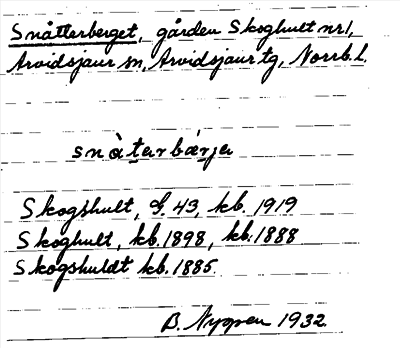 Snåtterberget, gården Skoghult nr 1,
Arvidsjaur sn, Arvidsjaur tg, Norrb. l.
snàterbærje
Skogshult, S. 43, kb. 1919
Skoghult, kb. 1898, kb. 1888
Skogshuldt kb. 1885.
B. Nygren 1932.